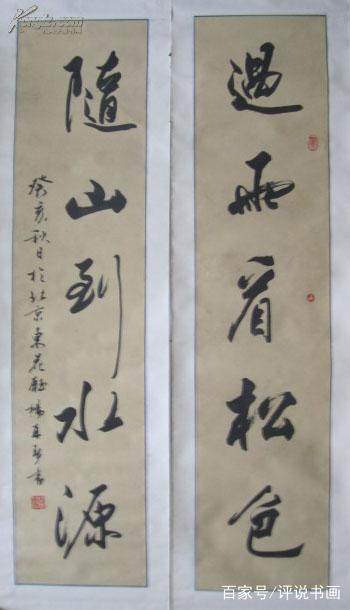 過雨看松色
隨山到水源
癸亥秋日於北京東花廳楊再春書
百家号/评说书画